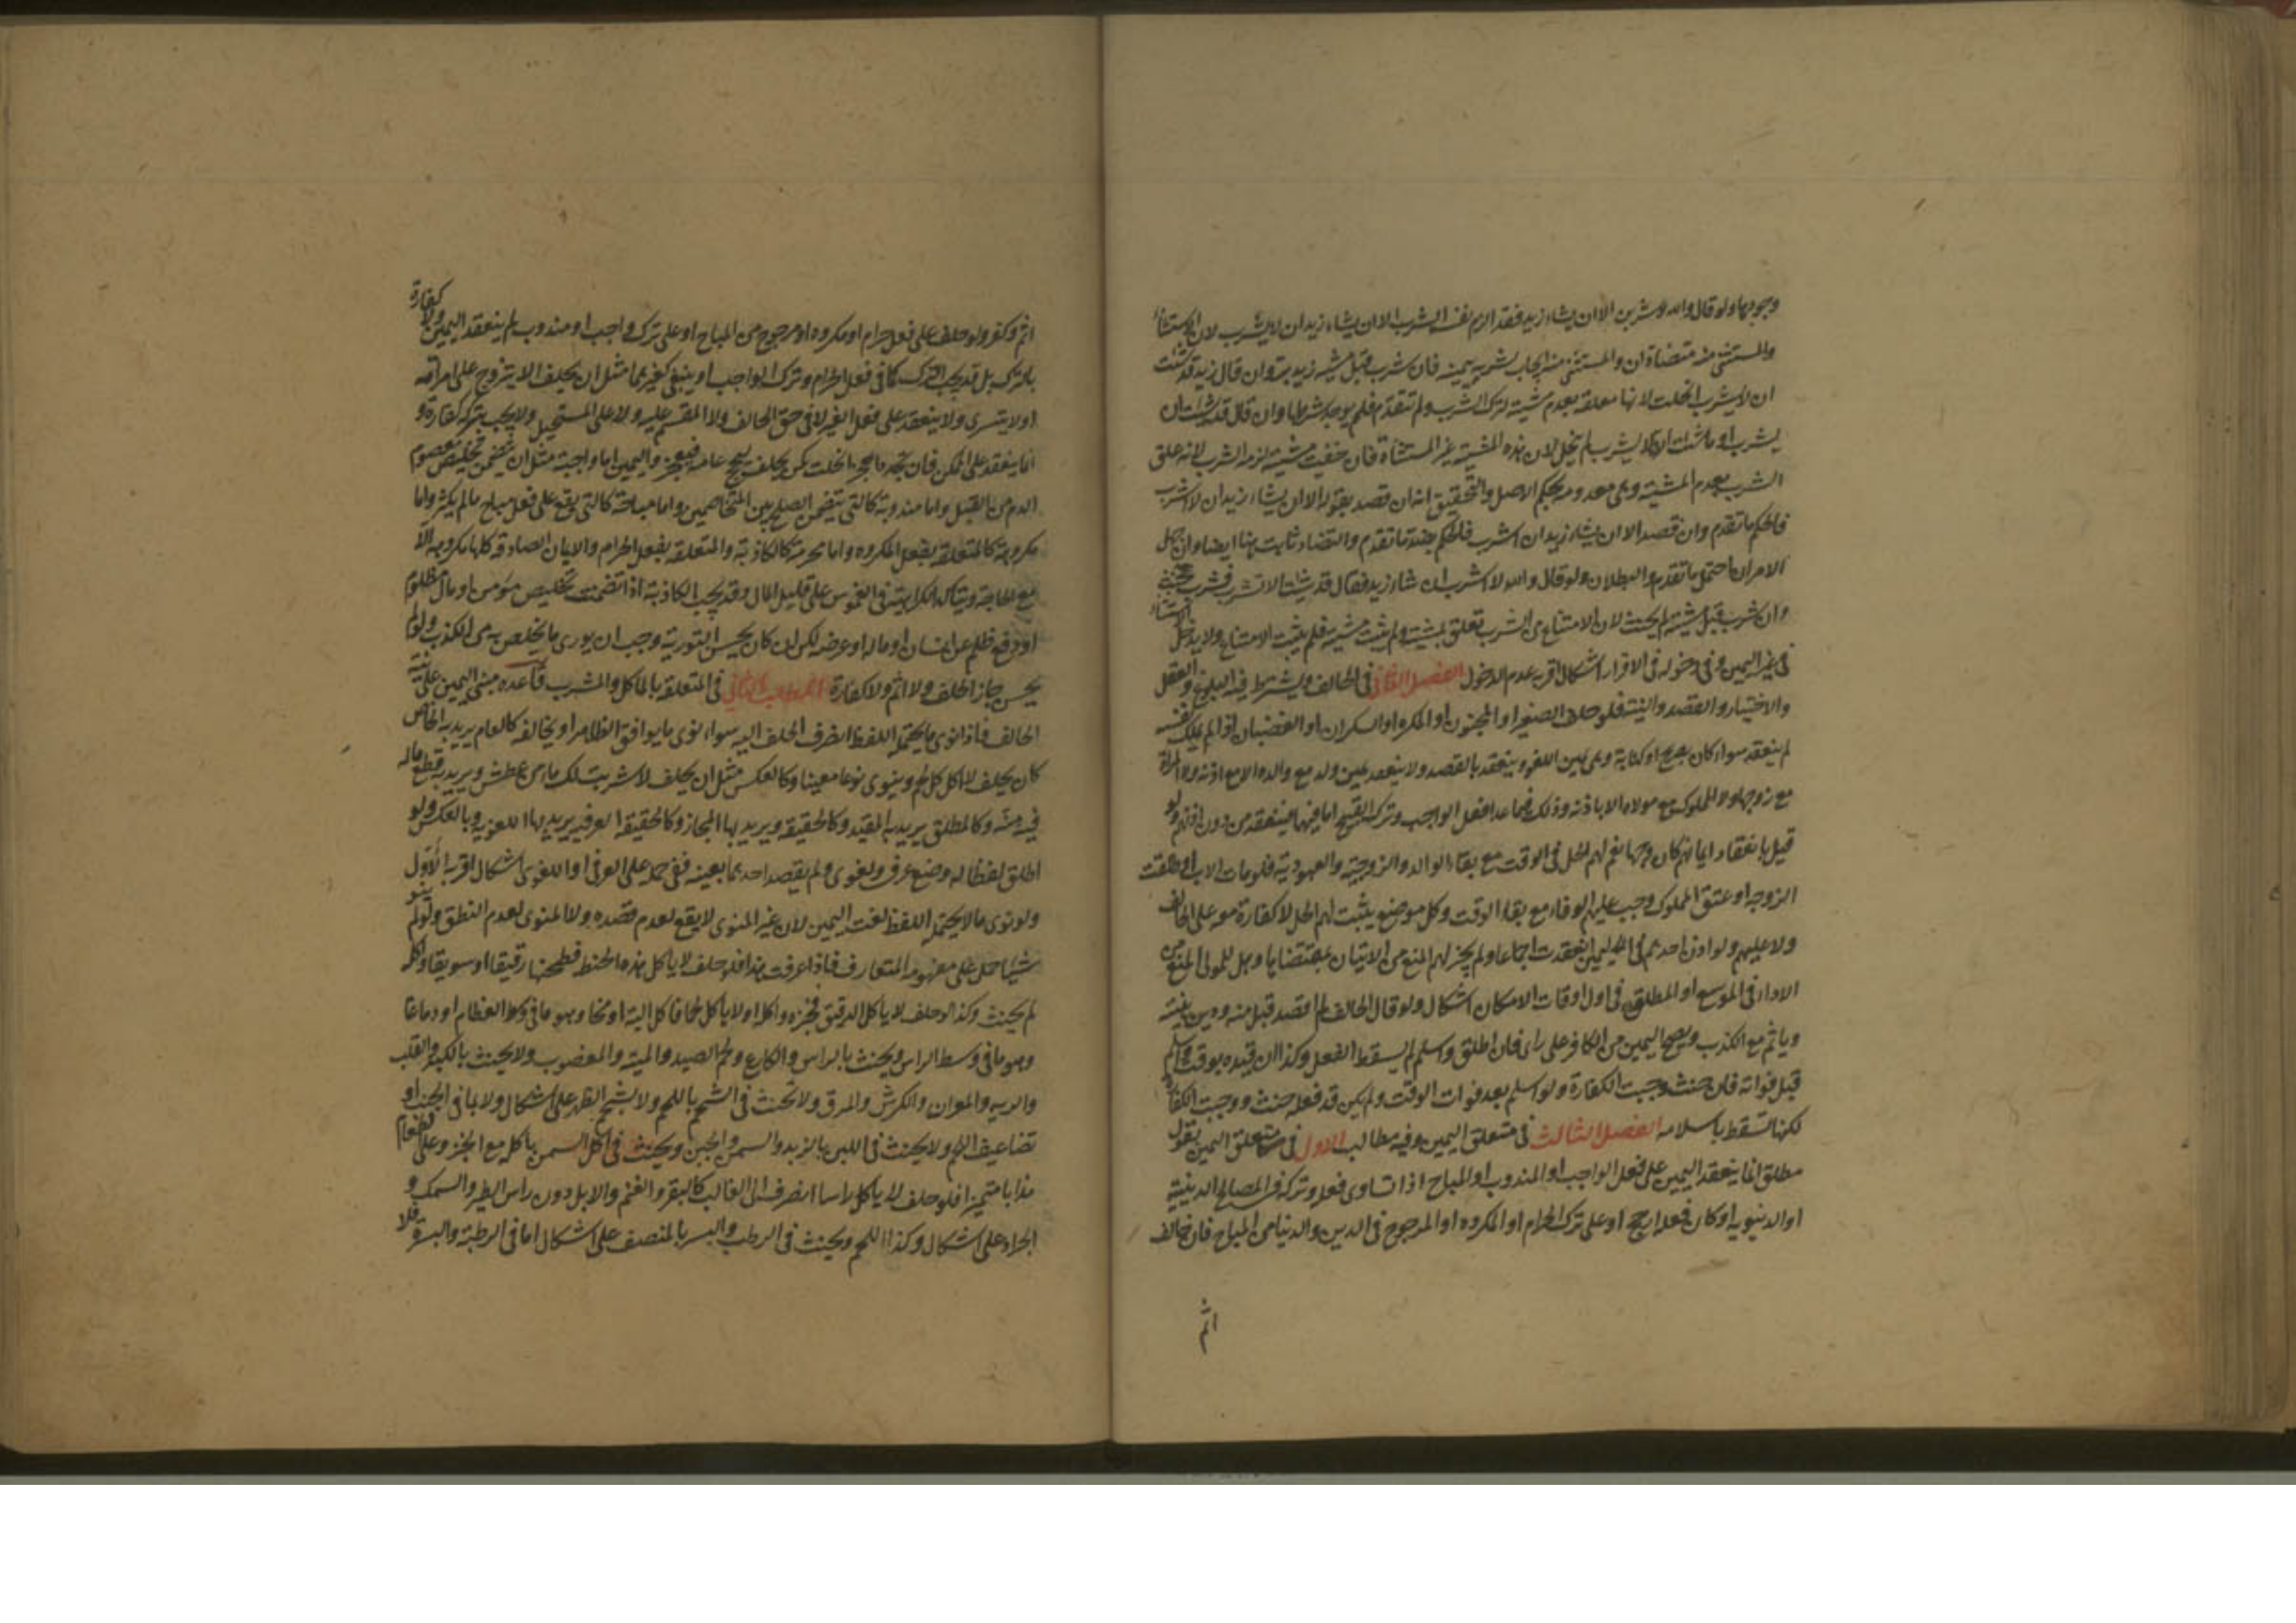 وجودها ولو قال والله لاشربن الا ان يشاء زيد فقد الزم نفسه الشرب الا ان يشاء زيد ان لا يشرب لان الاستثناء
والمستثنى منه متضادان والمستثنى منه ايجاب لشربه بيمينه فان شرب قبل مشية زيد بر وان قال زيد قد شئت
ان لا يشرب انحلت لانها معلقة بعدم مشيته لترك الشرب ولم تتقدم فلم يوجد شرطها وان قال قد شئت ان
يشرب او ما شئت ان لا يشرب لم تنحل لان هذه المشية غير المستثناة فان خفيت مشيته لزمه الشرب لانه علق
الشرب بعدم المشية وهي معدومة بحكم الاصل والتحقيق انه ان قصد بقوله الا ان يشاء زيد ان لا اشرب
فالحكم ما تقدم وان قصد الا ان يشاء زيد ان اشرب فالحكم بضد ما تقدم والتضاد ثابت هنا ايضا وان جهل
الامران احتمل ما تقدم والبطلان ولو قال والله لا اشرب ان شاء زيد فقال قد شئت الا تشرب فشرب حنث
وان شرب قبل مشيته لم يحنث لان الامتناع من الشرب تعلق بمشيته ولم يثبت مشيته فلم يثبت الامتناع ولا يدخل الاستثناء
في غير اليمين وفي دخوله في الاقرار اشكال اقربه عدم الدخول الفصل الثاني في الحالف ويشترط فيه البلوغ والعقل
والاختيار والقصد والنية فلو حلف الصغير او المجنون او المكره او السكران او الغضبان اذا لم يملك نفسه
لم ينعقد سواء كان بصريح او كناية وهي يمين اللغو وينعقد بالقصد ولا ينعقد يمين ولد مع والده الا مع اذنه ولا المراة
مع زوجها ولا المملوك مع مولاه الا باذنه وذلك فيما عدا فعل الواجب وترك القبيح اما فيهما فينعقد من دون اذنهم ولو
قيل بانعقاد ايمانهم كان وجها نعم لهم الحل في الوقت مع بقاء الوالد والزوجية والعبودية فلو مات الاب او طلقت
الزوجة او عتق المملوك وجب عليهم الوفاء مع بقاء الوقت وكل موضع يثبت لهم الحل لا كفارة معه على الحالف
ولا عليهم ولو اذن احدهم في اليمين انعقدت اجماعا ولم يجز لهم المنع من الاتيان بمقتضاها وهل للمولى المنع من
الاداء في الموسع او المطلق في اول اوقات الامكان اشكال ولو قال الحالف لم اقصد قبل منه ودين بنيته
وياثم مع الكذب ويصح اليمين من الكافر على راى فان اطلق واسلم لم يسقط الفعل وكذا ان قيده بوقت واسلم
قبل فواته فان حنث وجبت الكفارة ولو اسلم بعد فوات الوقت ولم يكن قد فعله حنث ووجبت الكفارة
لكنها تسقط باسلامه الفصل الثالث في متعلق اليمين وفيه مطالب الاول في متعلق اليمين بقول
مطلق انما ينعقد اليمين على فعل الواجب او المندوب او المباح اذا تساوى فعله وتركه في المصالح الدينية
او الدنيوية او كان فعله ارجح او على ترك الحرام او المكروه او المرجوح في الدين والدنيا من المباح فان خالف
اثم
اثم وكفر ولو حلف على فعل حرام او مكروه او مرجوح من المباح او على ترك واجب او مندوب لم ينعقد اليمين ولا كفارة
بالترك بل قد يجب الترك كما في فعل الحرام وترك الواجب او ينبغي كغيرهما مثل ان يحلف الا يتزوج على امراته
او لا يتسرى ولا ينعقد على فعل الغير لا في حق الحالف ولا المقسم عليه ولا على المستحيل ولا يجب بتركه كفارة و
انما ينعقد على الممكن فان تجدد العجز انحلت كمن يحلف ليحج عامه فيعجز واليمين اما واجبة مثل ان يتضمن تخليص معصوم
الدم من القتل واما مندوبة كالتي يتضمن الصلح بين المتخاصمين واما مباحة كالتي يقع على فعل مباح ما لم يكثر واما
مكروهة كالمتعلقة بفعل المكروه واما محرمة كالكاذبة والمتعلقة بفعل الحرام والايمان الصادقة كلها مكروهة الا
مع الحاجة ويتاكد الكراهية في الغموس على قليل المال وقد يجب الكاذبة اذا تضمنت تخليص مؤمن او مال مظلوم
او دفع ظلم عن انسان او ماله او عرضه لكن ان كان يحسن التورية وجب ان يوري ما يخلص به من الكذب ولو لم
يحسن جاز الحلف ولا اثم ولا كفارة المطلب الثاني في المتعلقة بالماكل والمشرب قاعده مبنى اليمين على نية
الحالف فاذا نوى ما يحتمله اللفظ انصرف الحلف اليه سواء نوى ما يوافق الظاهر او يخالفه كالعام يريد به الخاص
كان يحلف لا اكل كل لحم وينوى نوعا معينا وكالعكس مثل ان يحلف لا شربت لك ماء من عطش ويريد به قطع ماله
فيه منة وكالمطلق يريد به المقيد وكالحقيقة ويريد بها المجاز وكالحقيقة العرفية يريد بها اللغوية وبالعكس ولو
اطلق لفظا له وضع عرفي ولغوى ولم يقصد احدهما بعينه ففي حمله على العرفي او اللغوى اشكال اقربه الاول
ولو نوى ما لا يحتمله اللفظ لغت اليمين لان غير المنوى لا يقع لعدم قصده ولا المنوى لعدم النطق ولو لم ينو
شيئا حمل على مفهومه المتعارف فاذا عرفت هذا فلو حلف لا ياكل هذه الحنطة فطحنها دقيقا او سويقا واكله
لم يحنث وكذا لو حلف لا ياكل الدقيق فخبزه واكله او لا ياكل لحما فاكل الية او مخا وهو ما في وسط العظام او دماغا
وهو ما في وسط الراس ويحنث بالراس والكارع ولحم الصيد والميتة والمغصوب ولا يحنث بالكبد والقلب
والرية والمصران والكرش والمرق ولا تحنث في الشحم باللحم ولا بشحم الظهر على اشكال ولا بما في الجنب او
تضاعيف اللحم ولا يحنث في اللبن بالزبد والسمن والجبن ويحنث في اكل السمن باكله مع الخبز وعلى الطعام
مذابا متميزا فلو حلف لا ياكل راسا انصرف الى الغالب كالبقر والغنم والابل دون راس الطير والسمك و
الجراد على اشكال وكذا اللحم ويحنث في الرطب والبسر بالمنصف على اشكال اما في الرطبة والبسرة فلا